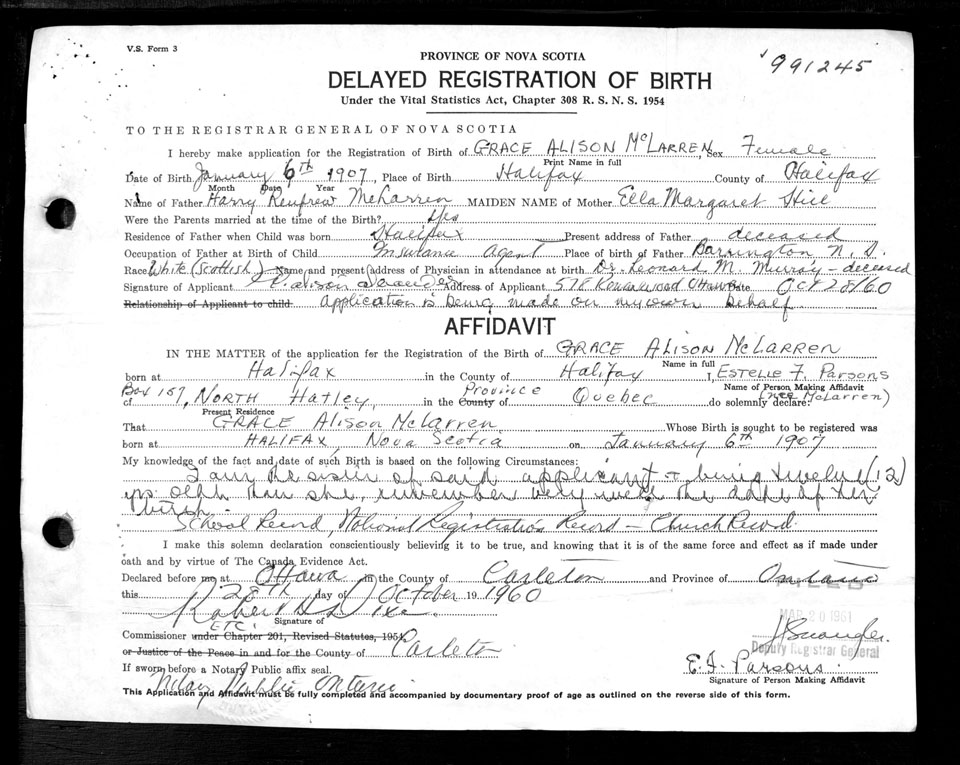 V.S. Form 3
991245
PROVINCE OF NOVA SCOTIA
DELAYED REGISTRATION OF BIRTH
Under the Vital Statistics Act, Chapter 308 R. S. N. S. 1954
TO THE REGISTRAR GENERAL OF NOVA SCOTIA
I hereby make application for the Registration of Birth of GRACE ALISON McLARREN Sex Female
Print Name in full
Date of Birth January 6th 1907, Place of Birth Halifax County of Halifax
Month Date Year
Name of Father Harry Renfrew McLarren MAIDEN NAME of Mother Ella Margaret Hill
Were the Parents married at the time of the Birth? Yes
Residence of Father when Child was born Halifax Present address of Father deceased
Occupation of Father at Birth of Child Insurance agent Place of birth of Father Barrington N. S.
Race White (Scottish) Name and present address of Physician in attendance at birth Dr. Leonard M. Murray - deceased
Signature of Applicant Alison Address of Applicant 578 Ottawa Date Oct 28/60
Relationship of Applicant to child. Application is being made on my own behalf
AFFIDAVIT
IN THE MATTER of the application for the Registration of the Birth of GRACE ALISON McLARREN
Name in full
born at Halifax in the County of Halifax I, ESTELLE F. PARSONS
Name of Person Making Affidavit
of Box 157, NORTH Hatley, in the County of Province Quebec do solemnly declare: (nee McLarren)
Present Residence
That GRACE Alison McLarren Whose Birth is sought to be registered was
born at HALIFAX, Nova Scotia on January 6th 1907
My knowledge of the fact and date of such Birth is based on the following Circumstances:
I am the sister of said applicant & being twelve (12)
yrs older than she, remember very well the date of her
birth.
School Record, National Registration Record - Church Record.
I make this solemn declaration conscientiously believing it to be true, and knowing that it is of the same force and effect as if made under
oath and by virtue of The Canada Evidence Act.
Declared before me at Ottawa in the County of Carleton and Province of Ontario
this 28th day of October 1960
FILED
MAR 20 1961
Robert
Signature of
ETC.
Commissioner under Chapter 201, Revised Statutes, 1954,
Deputy Registrar General
or Justice of the Peace in and for the County of Carleton
E. F. Parsons
If sworn before a Notary Public affix seal.
Signature of Person Making Affidavit
Notary Public Ontario
This Application and Affidavit must be fully completed and accompanied by documentary proof of age as outlined on the reverse side of this form.